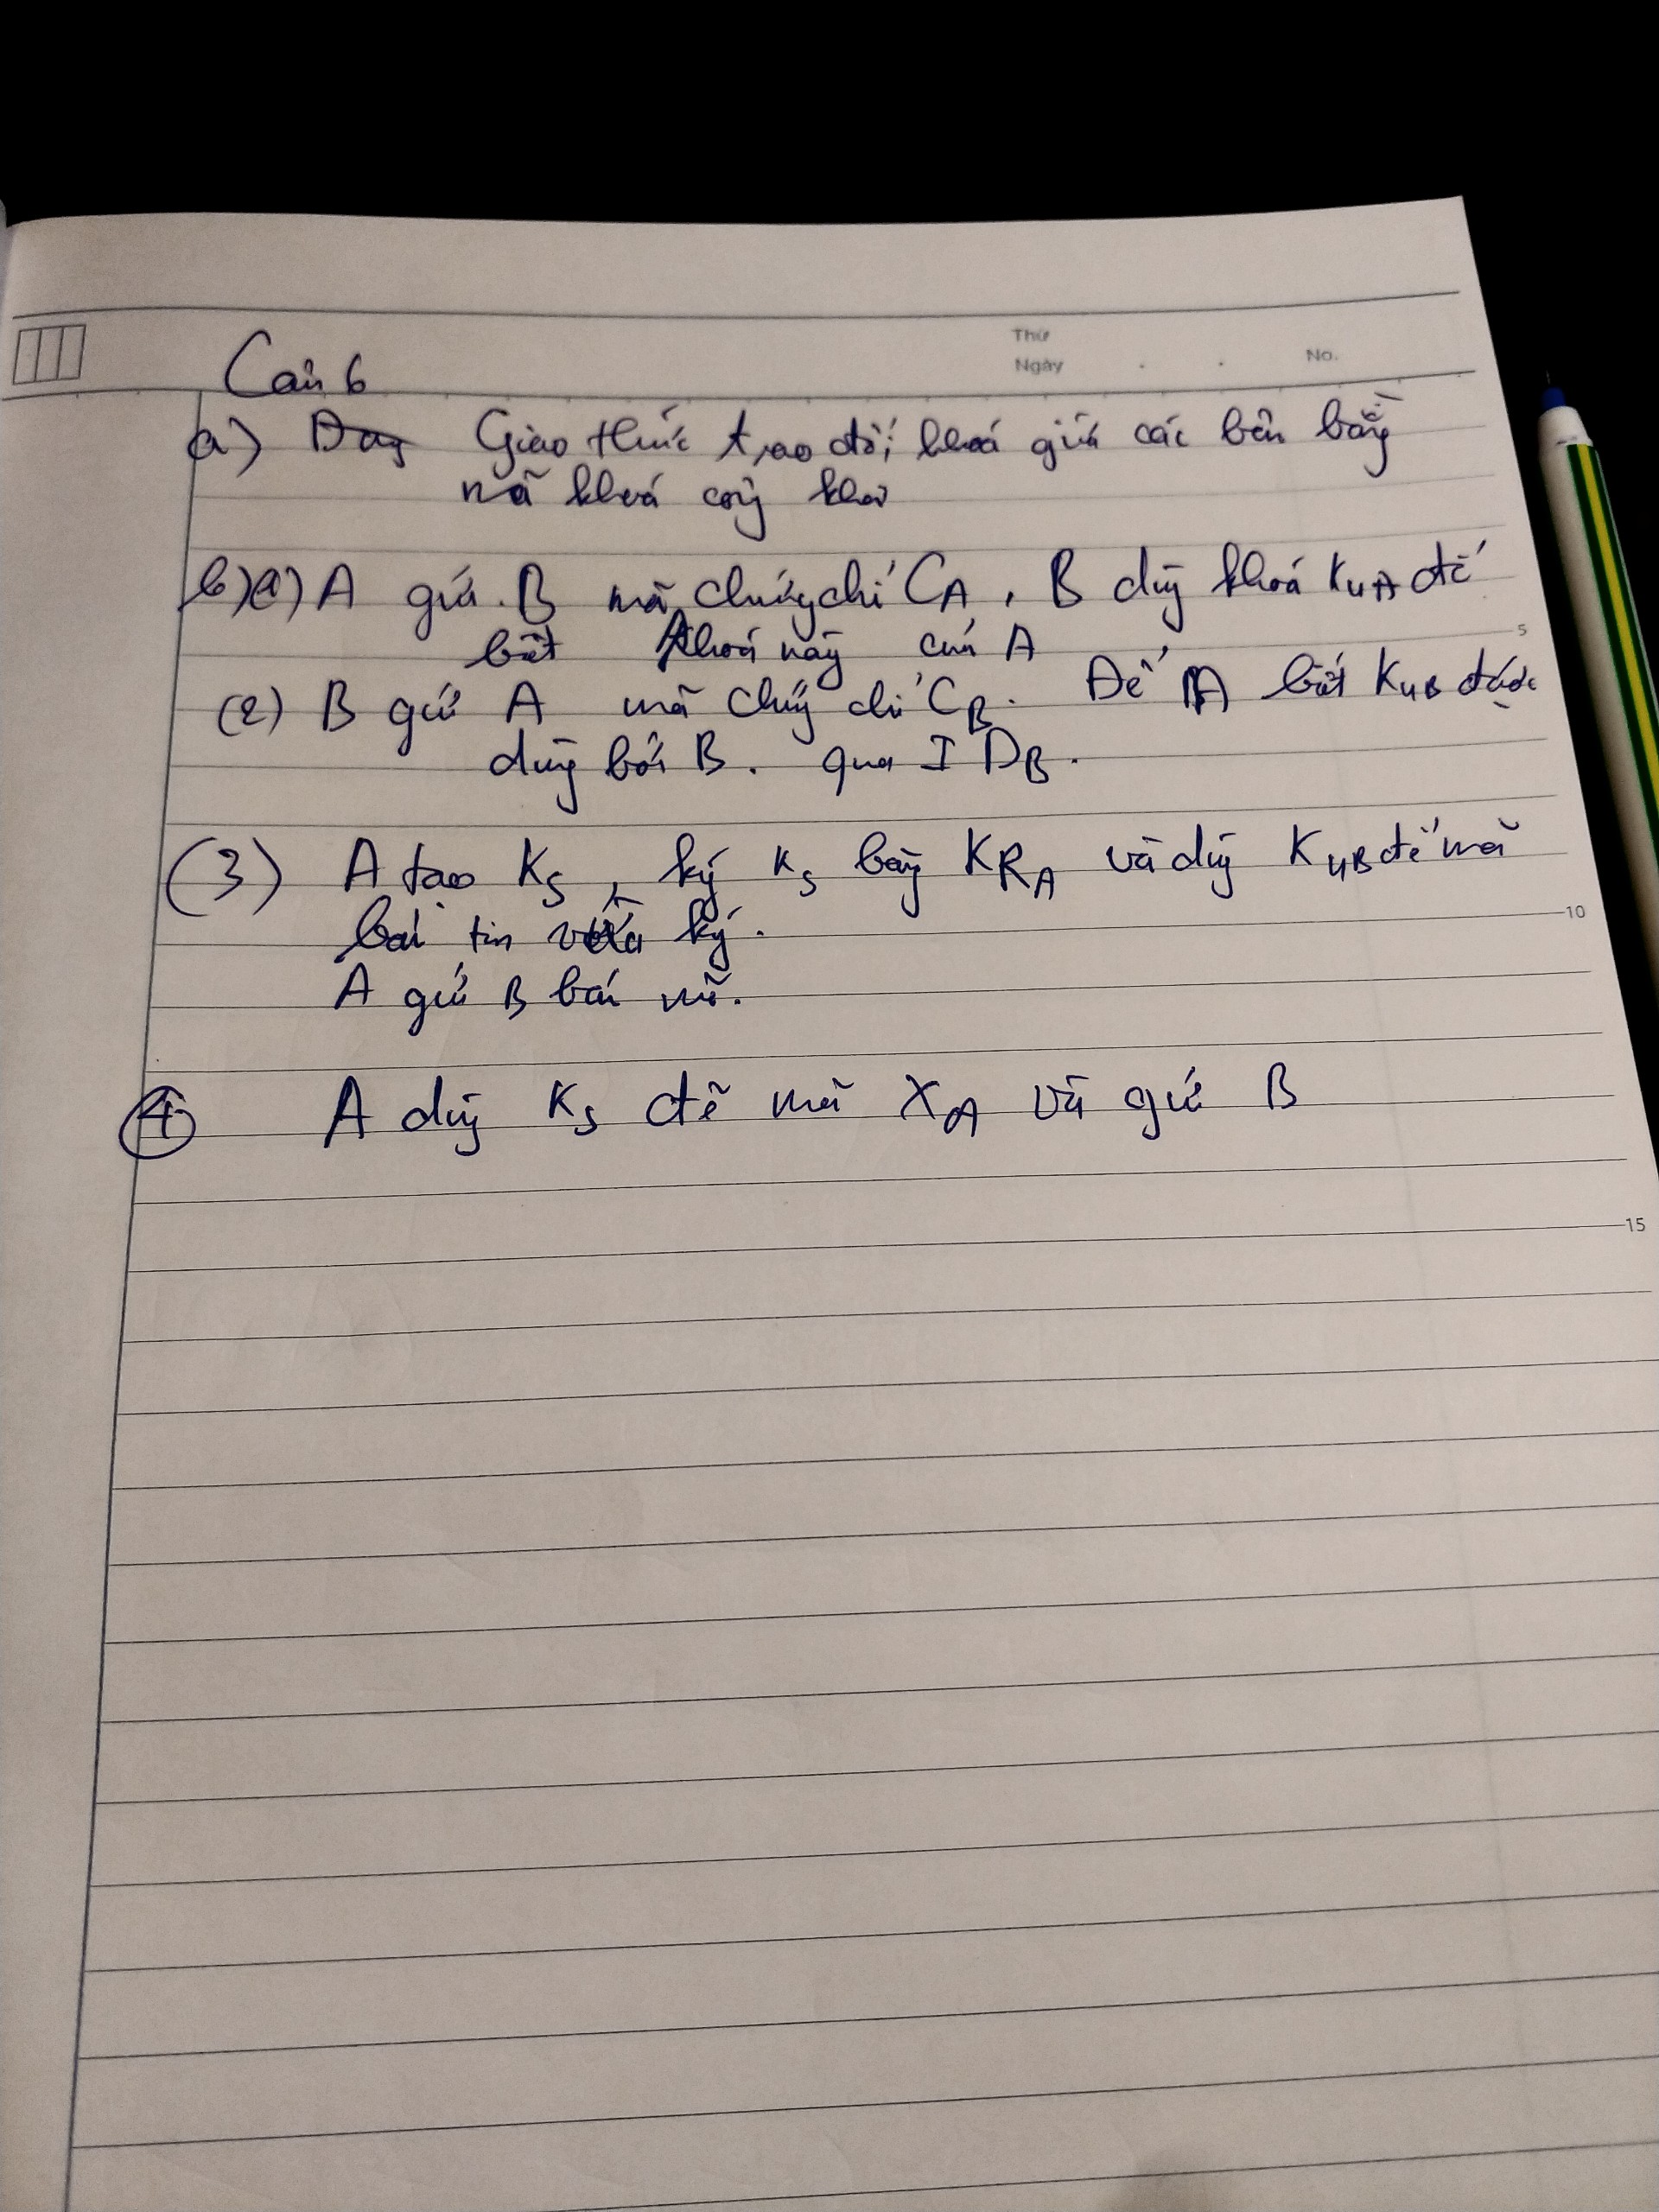 Thứ
Ngày . . No.
Câu 6
a) Dùng Giao thức trao đổi khoá giữa các bên bằng
mã khoá công khai
b) (1) A gửi B mã chứng chỉ CA, B dùng khoá KUA để
biết khoá này của A
(2) B gửi A mã chứng chỉ CB. Để A biết KUB được
dùng bởi B. qua IDB.
5
(3) A tạo KS, ký KS bằng KRA và dùng KUB để mã
bản tin vừa ký.
10
A gửi B bản mã.
(4) A dùng KS để mã XA và gửi B
15